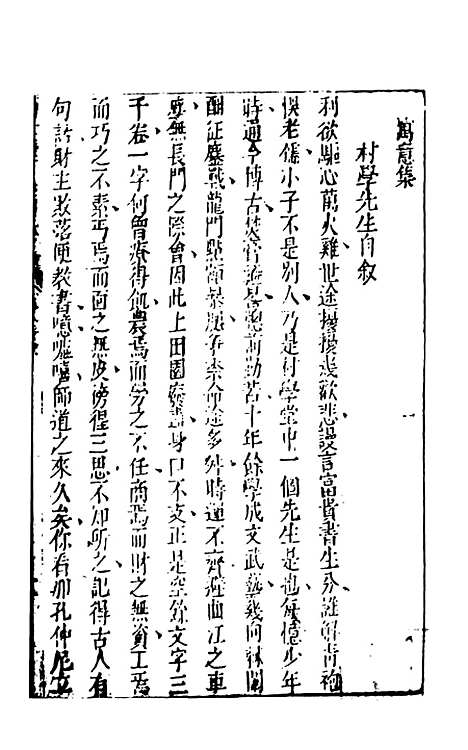 寓意集
村學先生自敘
利欲驅心萬火雞世途擾擾幾歡悲謾言富貴書生分誰解青袍
悞老儒小子不是別人乃是村學堂中一個先生是也每憶少年
時通今博古焚膏繼晷懸前劬苦十年餘學成文武藝幾向棘闈
酣征塵戰龍門點額暴腮爭柰命途多舛時運不齊避曲江之車
塵無長門之際會因此上田園廢盡身口不支正是空餘文字三
千卷一字何曾療得飢農焉而勞之不任商焉而財之無資工焉
而巧之不素丐焉而面之無皮徬徨三思不知所之記得古人有
句話財主敗落便教書噫嘘嘻師道之來久矣你看那孔仲尼立